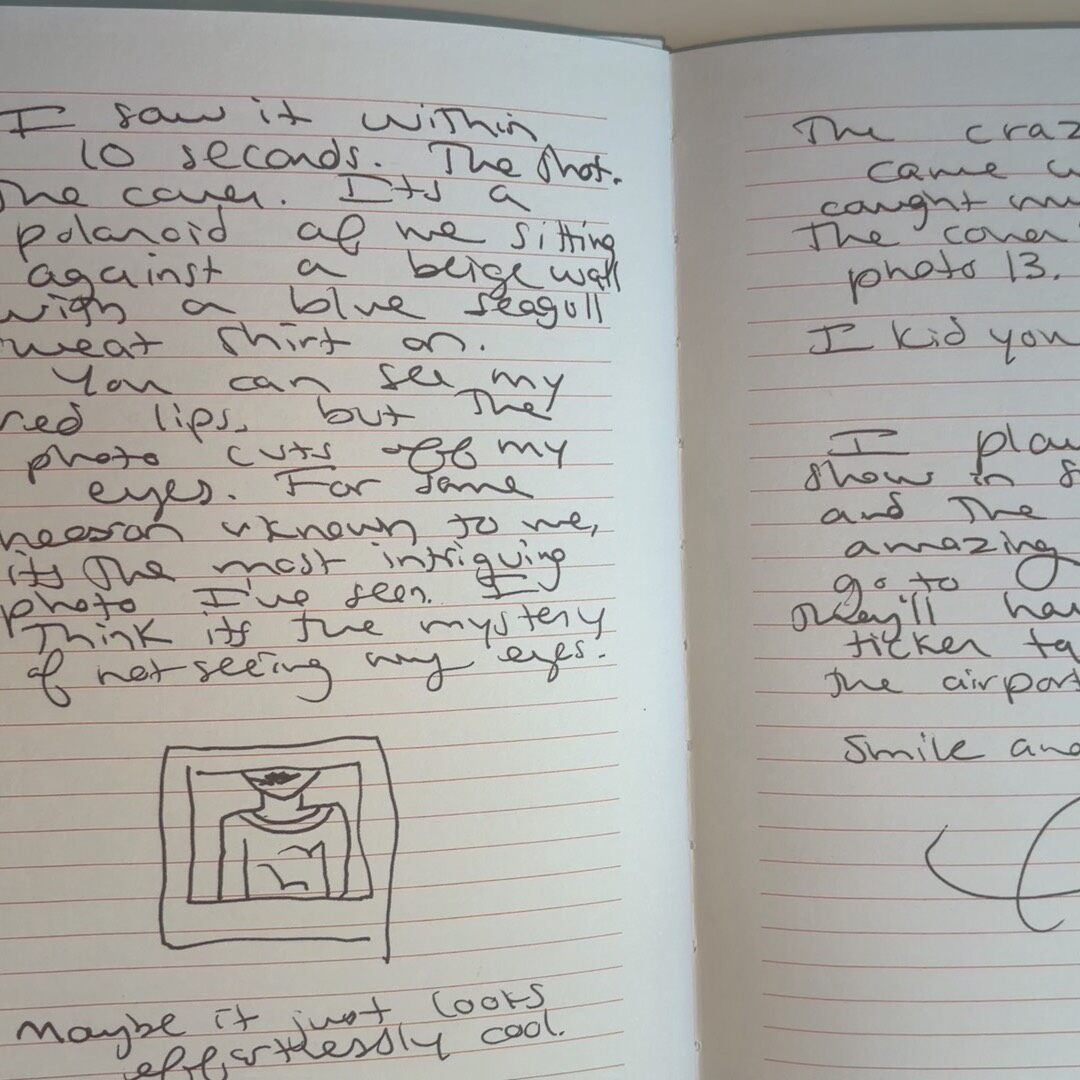 I saw it within
10 seconds. The shot.
The cover. Its a
polaroid of me sitting
against a beige wall
with a blue seagull
sweat shirt on.
You can see my
red lips, but the
photo cuts off my
eyes. For some
reason uknown to me,
its the most intriguing
photo I've seen. I
Think its the mystery
of not seeing my eyes.
Maybe it just looks
effortlessly cool.
The craz
came w
caught my
The cover
photo 13.
I kid you
I play
shows in S
and The
amazing
go to
they'll hav
ticker ta
the airport
Smile and